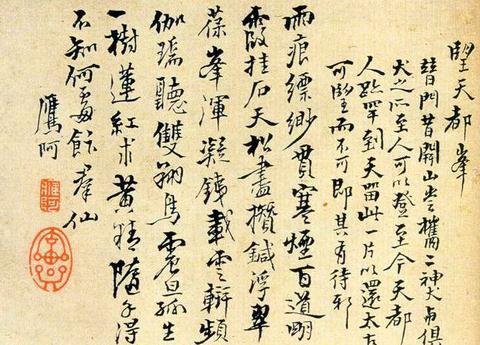 望天都峯
普門昔開山嘗攜二神犬與俱
犬之所至人可以登至今天都
人跡罕到天留此一片以還太古
可望而不可即其有待邪
雨痕縹緲貫寒煙百道明
霞挂石天松盡攢鍼浮翠
葆峯渾凝鐵載雲軿頻
伽瑞聽雙翔鳥震旦孤生
一樹蓮紅朮黃精隨手得
不知何處飯羣仙
鷹阿